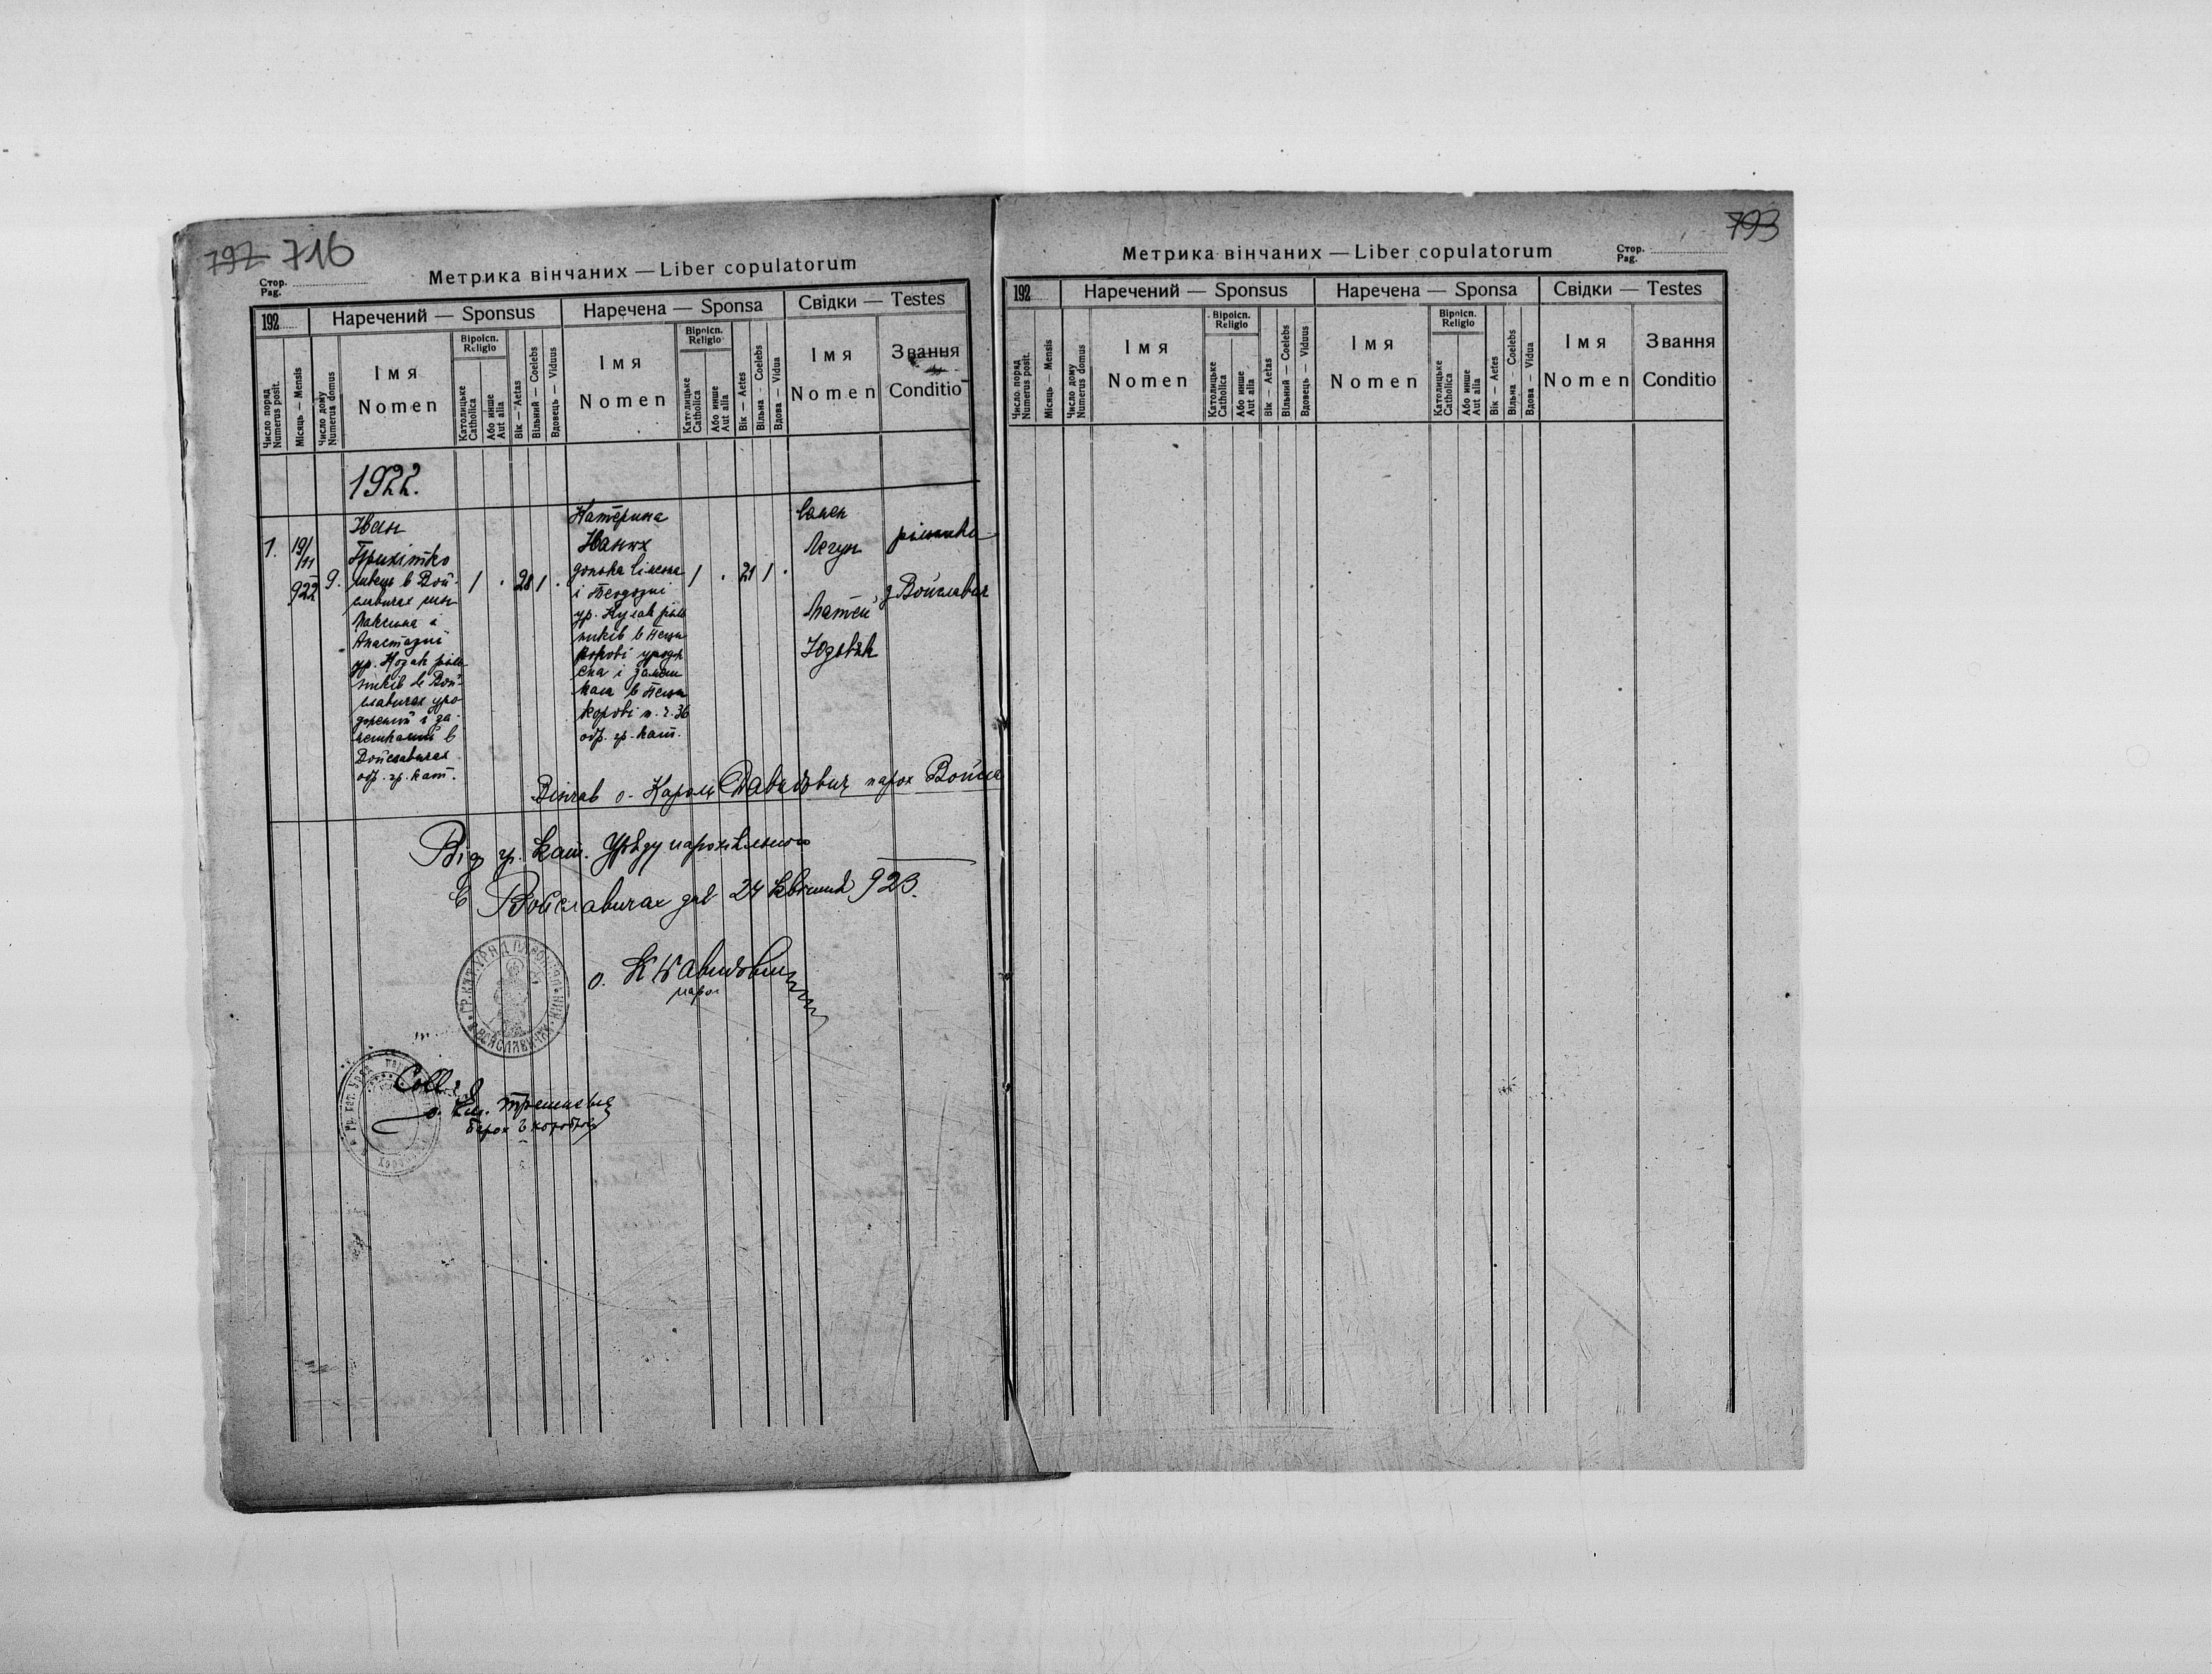 797 716
Стор.
Pag.
Метрика вінчаних — Liber copulatorum
192
Наречений — Sponsus
Наречена — Sponsa
Свідки — Testes
Число поряд
Numerus posit.
Місяць — Mensis
Число дому
Numerus domus
Імя
Nomen
Віроісп.
Religio
Католицьке
Catholica
Або инше
Aut alia
Вік — Aetas
Вільний — Coelebs
Вдовець — Viduus
Імя
Nomen
Віроісп.
Religio
Католицьке
Catholica
Або инше
Aut alia
Вік — Aetes
Вільна — Coelebs
Вдова — Vidua
Імя
Nomen
Звання
Conditio
1922.
1.
19/11
922
9.
Іван
швець в Вой-
славичах син
Максима і
Анастазиї
ур. Козак ріль
ників в Вой-
славичах уро
джений і за-
мешкалий в
Войславичах
обр. гр. кат.
1 . 28 1 .
Катерина
донька
і Теодозиї
ур. Кулак ріль
ників в
корові уродж
ена і замеш
кала в
корові п. ч. 36
обр. гр. кат.
1 . 21 1 .
Матей
рільники
з Войславич
Вінчав о. Кароль Давидович парох Войсла
Від гр. кат. Уряду парохіяльного
в Войславичах дня 24 квітня 923.
о. К Давидович
парох
ГР. КАТ. УРЯД ПАРОХІЯЛЬНИЙ
В ВОЙСЛАВИЧАХ
793
Метрика вінчаних — Liber copulatorum
Стор.
Pag.
192
Наречений — Sponsus
Наречена — Sponsa
Свідки — Testes
Число поряд
Numerus posit.
Місяць — Mensis
Число дому
Numerus domus
Імя
Nomen
Віроісп.
Religio
Католицьке
Catholica
Або инше
Aut alia
Вік — Aetas
Вільний — Coelebs
Вдовець — Viduus
Імя
Nomen
Віроісп.
Religio
Католицьке
Catholica
Або инше
Aut alia
Вік — Aetes
Вільна — Coelebs
Вдова — Vidua
Імя
Nomen
Звання
Conditio